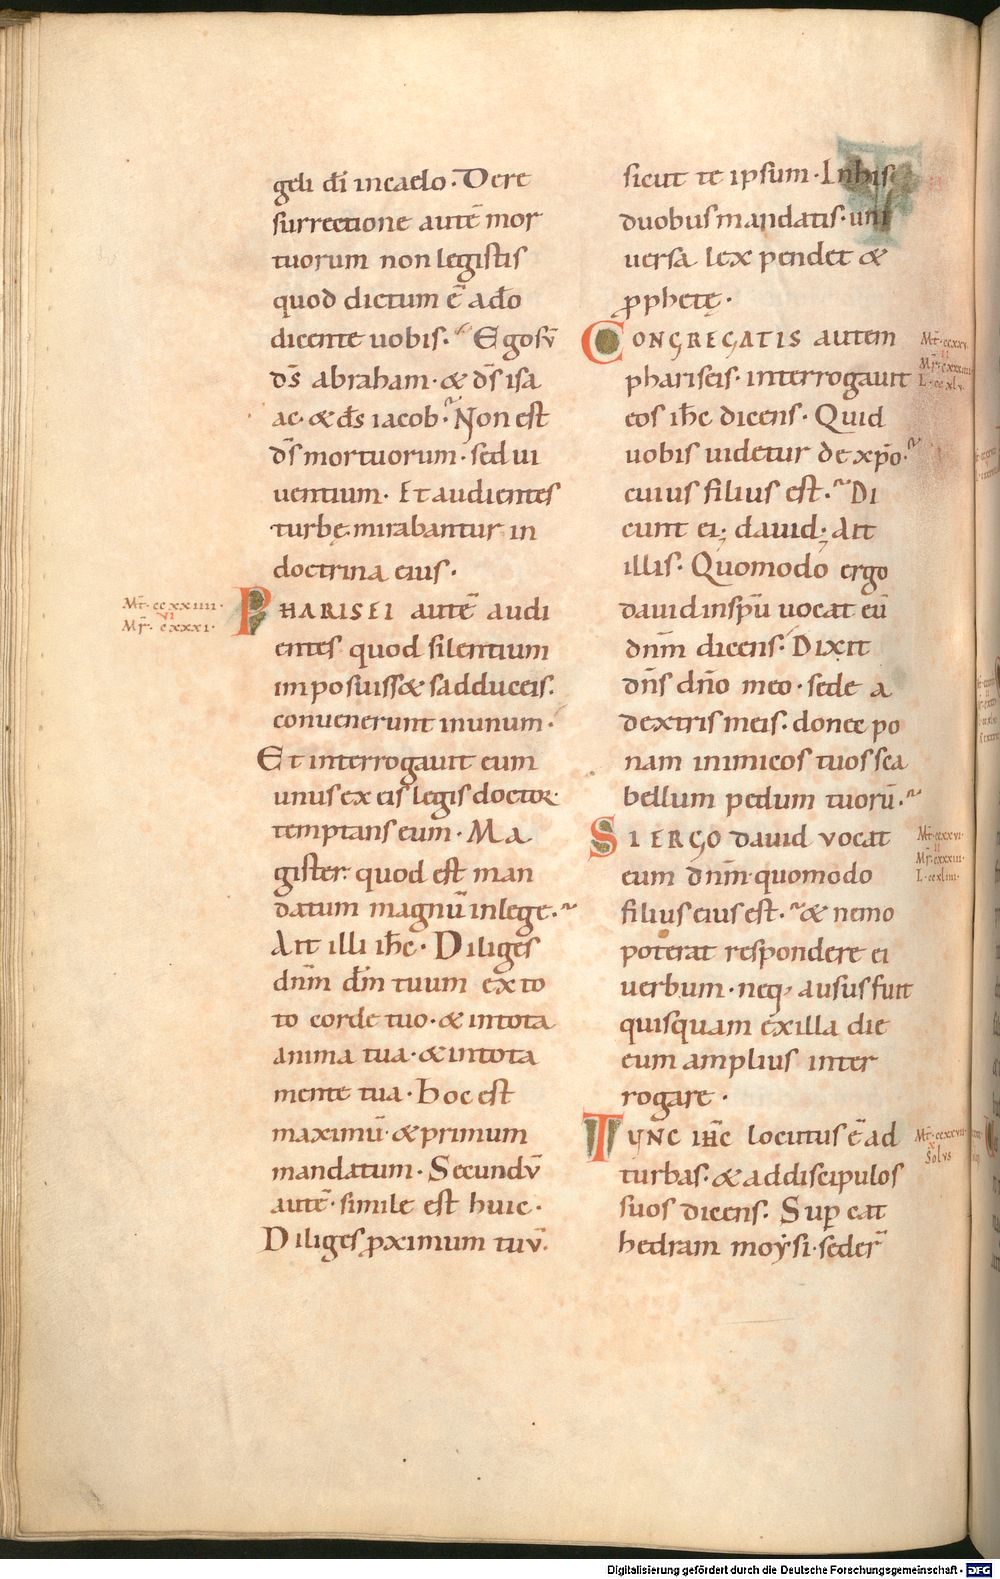 geli dī incaelo. Dere
surrectione autē mor
tuorum non legistis
quod dictum ē ado
dicente uobis. Ego sū
ds̄ abraham. & ds̄ isa
ac. & ds̄ iacob. Non est
ds̄ mortuorum. sed ui
uentium. Et audientes
turbę mirabantur in
doctrina eius.
Mt̄. ccxxiiii.
VI
Mr̄. cxxxi.
PHARISEI autē audi
entes quod silentium
imposuiss& sadduceis.
conuenerunt inunum.
Et interrogauit eum
unus ex eis legis doctor
temptans eum. Ma
gister. quod est man
datum magnū inlege.
Ait illi ihc̄. Diliges
dnm̄ dm̄ tuum ex to
to corde tuo. & intota
anima tua. & intota
mente tua. Hoc est
maximū. & primum
mandatum. Secundū
autē. simile est huic.
Diliges ꝓximum tuū.
sicut te ipsum. Inhis
duobus mandatis. uni
uersa lex pendet &
ꝓphetę.
CONGREGATIS autem
phariseis. interrogauit
eos ihc̄ dicens. Quid
uobis uidetur de xp̄o.
cuius filius est. Di
cunt ei; dauid. Ait
illis. Quomodo ergo
dauid inspū uocat eū
dnm̄ dicens. Dixit
dns̄ dn̄o meo. sede a
dextris meis. donec po
nam inimicos tuos sca
bellum pedum tuorū.
SI ERGO dauid vocat
eum dnm̄. quomodo
filius eius est. & nemo
poterat respondere ei
uerbum. neq; ausus fuit
quisquam exilla die
eum amplius inter
rogare.
TUNC IHC̄ locutus ē ad
turbas. & addiscipulos
suos dicens. Suꝑ cat
hedram moysi. seder̄
Mt̄. ccxxv.
II
L. ccxlv.
Mt̄. ccxxvi.
II
Mr̄. cxxxiii.
L. ccxliiii.
Mt̄. ccxxvii.
X
Solus
Digitalisierung gefördert durch die Deutsche Forschungsgemeinschaft - DFG